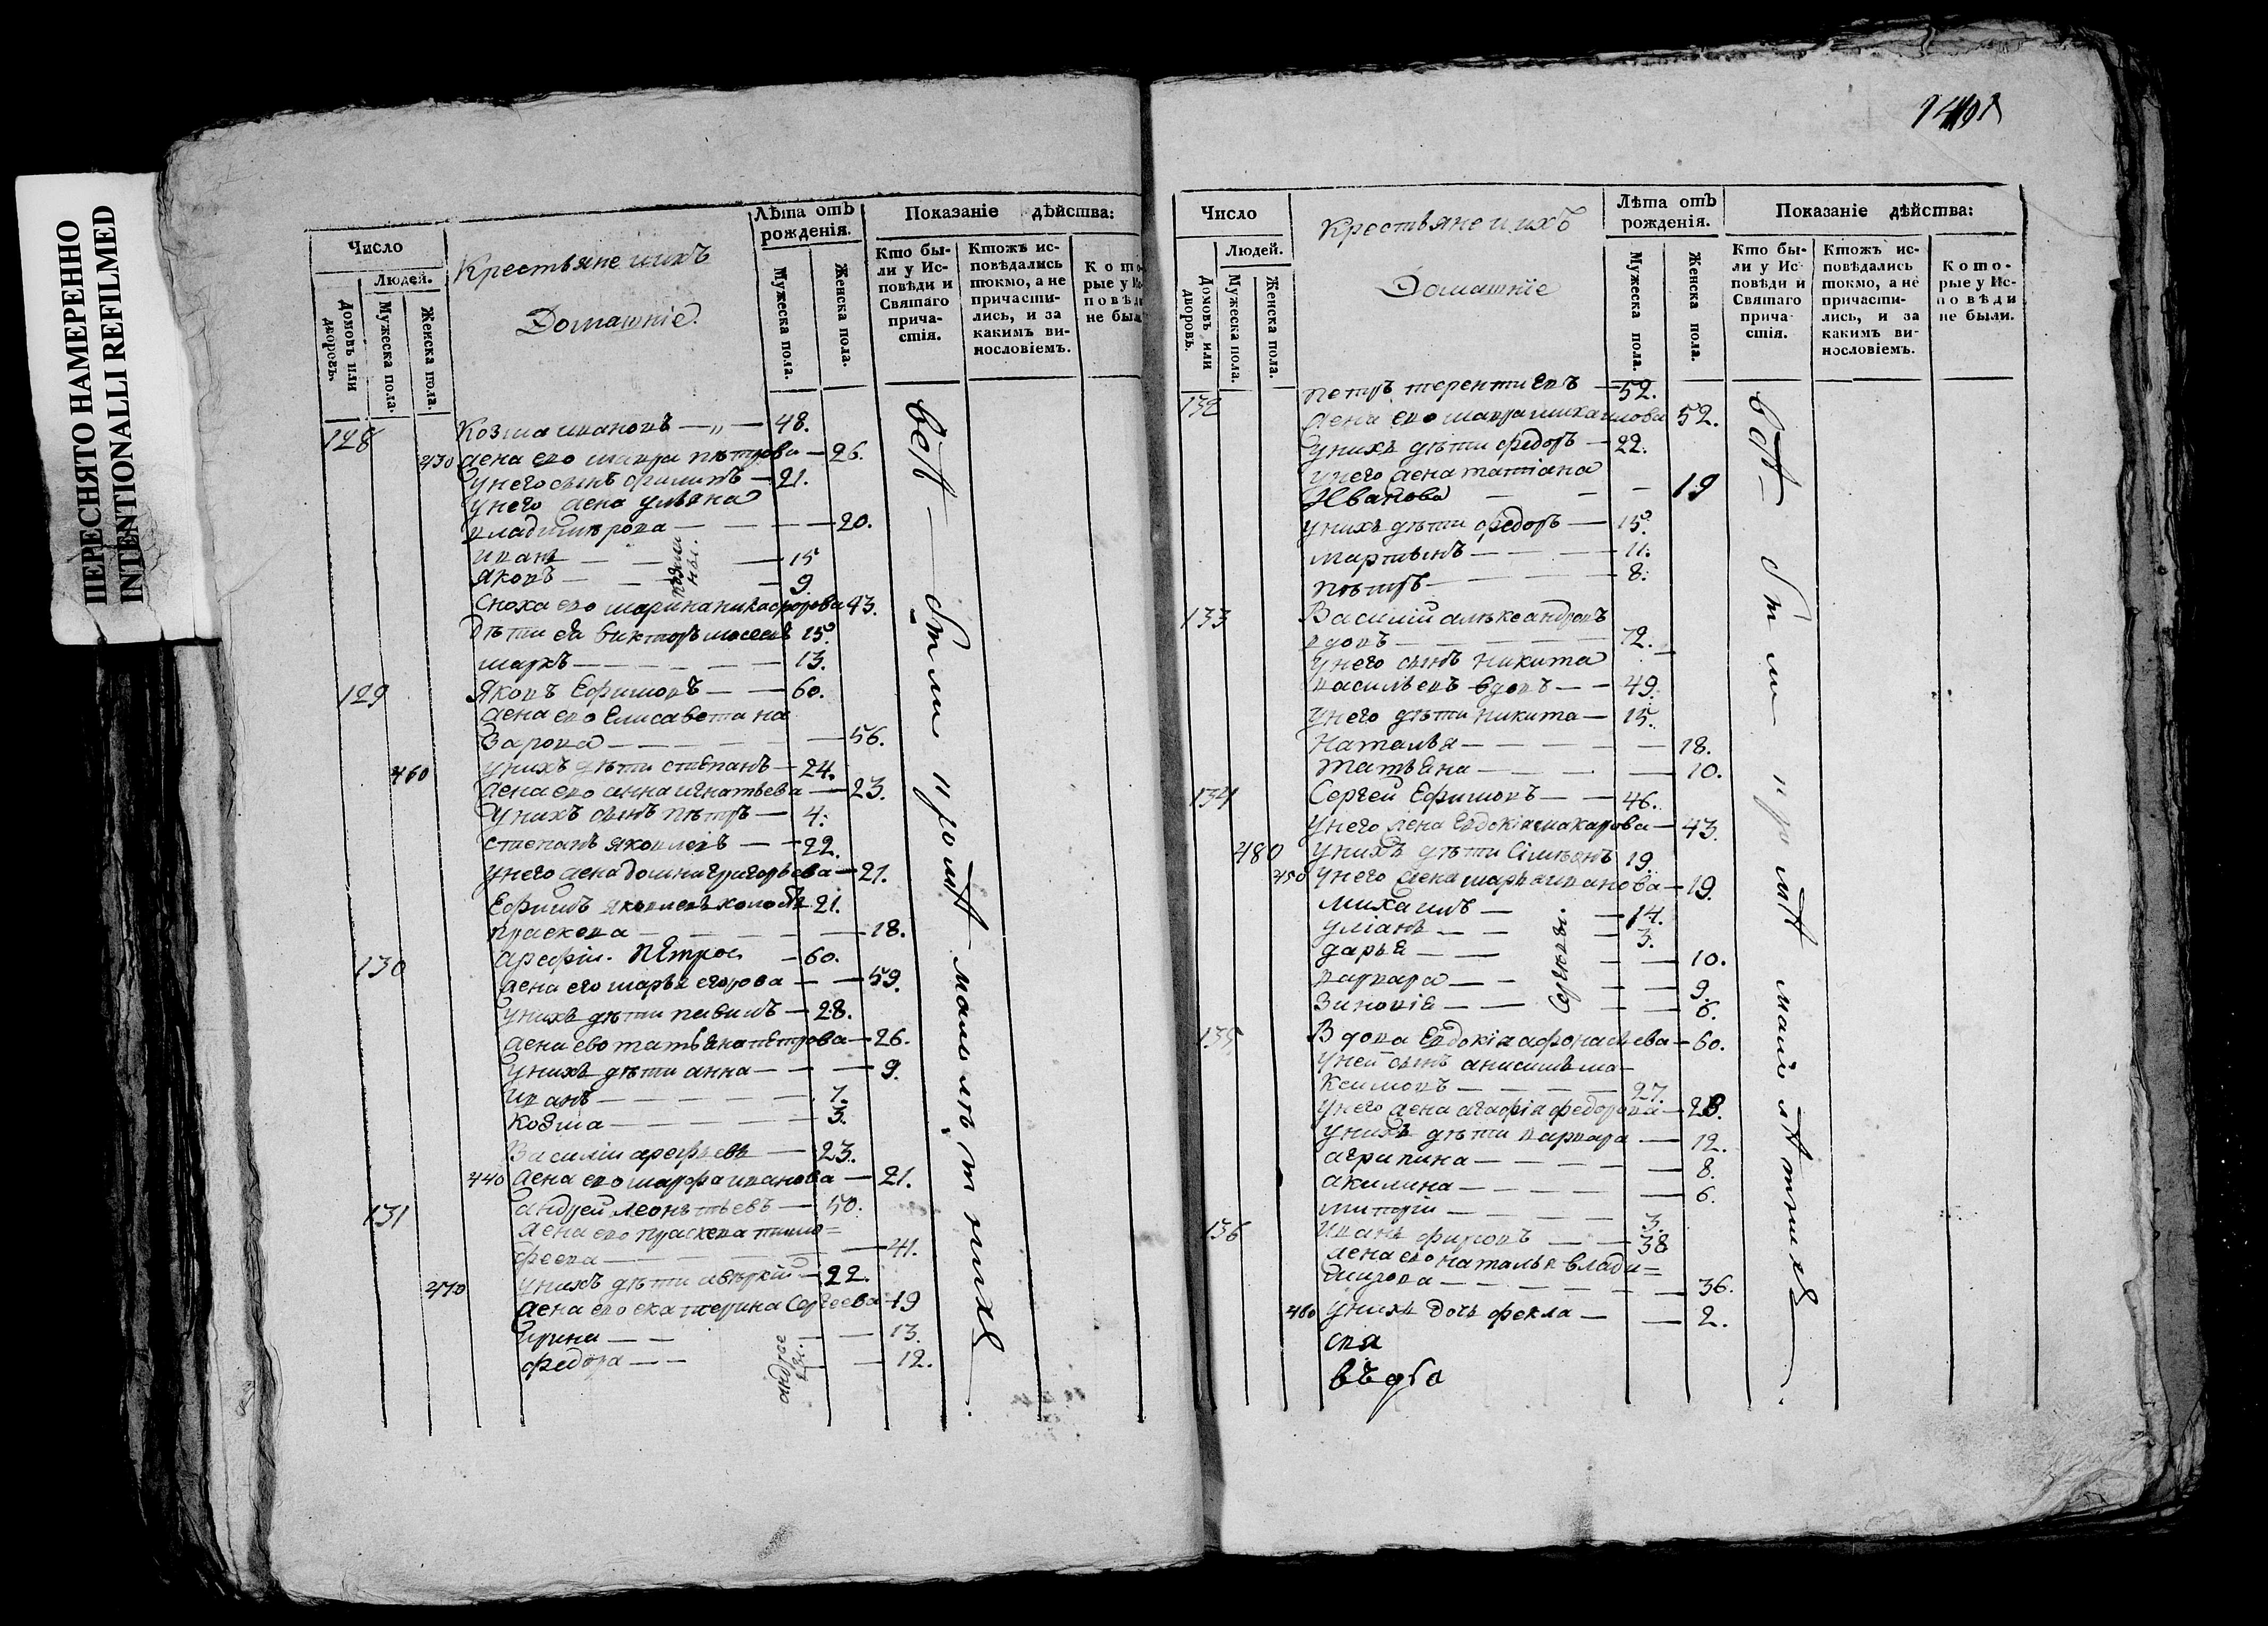 ПЕРЕСНЯТО НАМЕРЕННО
INTENTIONALLI REFILMED
Число
Людей.
Домовъ или дворовъ.
Мужеска пола.
Женска пола.
Крестьяне и ихъ
Домашніе.
Лѣта отъ рожденія.
Мужеска пола.
Женска пола.
Показаніе дѣйства:
Кто бы-
ли у Ис-
повѣди и
Святаго
прича-
стія.
Ктожъ ис-
повѣдались
токмо, а не
причасти-
лись, и за
какимъ ви-
нословіемъ.
Кото-
рые у Ис-
повѣди
не были
128 Козма ивановъ — „ — 48.
430 жена ево мавра пѣтрова — 26.
у него сынъ филипъ — 21.
у него жена ульяна
владимѣрова — — — — 20.
иванъ — — — 15
яковъ — — — 9.
Сноха ево марина никафорова 43.
дѣти ея викторъ 15.
маркъ — — — — 13.
129 Яковъ Ефимовъ — — 60.
жена ево Елисавета на
зарова — — — — 56.
460 у нихъ дѣти степанъ — 24.
жена ево анна игнатьева — 23.
у нихъ сынъ пѣтръ — 4.
степанъ яковлевъ — — 22.
у него жена домна григорьева — 21.
Ефимъ яковлевъ холостъ 21.
праскева — — — — 18.
130 арефій Петров — 60.
жена его марья егорова — — 59.
у нихъ дѣти павилъ — 28.
жена ево татьяна петрова — 26.
у нихъ дѣти анна — — — 9.
иванъ — — — — 7.
козма — — — — 3.
Василій арефьевъ — 23.
440 жена ево марфа иванова — 21.
131 андрей Леонътьевъ — 50.
жена ево праскева тимо=
феева — — — 41.
470 у нихъ дѣти авѣркій — 22.
жена ево екатерина Сергеева 19
ирина — — — — 13.
федора — — — — 12.
андрее
вы.
всѣ — были протчіи малолѣтнихъ
Число
Людей.
Домовъ или дворовъ.
Мужеска пола.
Женска пола.
Крестьяне и ихъ
Домашніе
Лѣта отъ рожденія.
Мужеска пола.
Женска пола.
Показаніе дѣйства:
Кто бы-
ли у Ис-
повѣди и
Святаго
прича-
стія.
Ктожъ ис-
повѣдались
токмо, а не
причасти-
лись, и за
какимъ ви-
нословіемъ.
Кото-
рые у Ис-
повѣди
не были.
132 петръ терентиевъ — 52.
жена ево мавра михаилова 52.
у нихъ дѣти федоръ — 22.
у него жена татіана
Иванова — — — 19
у нихъ дѣти федоръ — 15.
мартынъ — — — 11.
пѣтръ — — — 8.
133 Василій алѣксандровъ
вдовъ — — — 72.
у него сынъ никита
васильевъ вдовъ — — 49.
у него дѣти никита — 15.
Наталья — — — — 18.
татьяна — — — — 10.
134 Сергей Ефимовъ — — 46.
у него жена Евдокія макарова — 43.
480 у нихъ дѣти Сімѣонъ 19.
450 у него жена марья иванова — 19.
михаилъ — — 14.
уліанъ — — — 3.
дарья — — — — 10.
варвара — — — — 9.
зиновія — — — — 6.
Сергѣевы.
135 Вдова Евдокія афонасьева — 60.
у ней сынъ анисимъ ма-
ксимовъ — — — 27.
у него жена агафія федорова — 28.
у нихъ дѣти варвара — 12.
агрипина — — — — 8.
акилина — — — — 6.
— — — — 3.
136 иванъ фирсовъ — — 38
жена ево наталья влади=
мирова — — — — 36.
460 у нихъ дочь фекла — — 2.
всѣ — были протчіи малолѣтнихъ